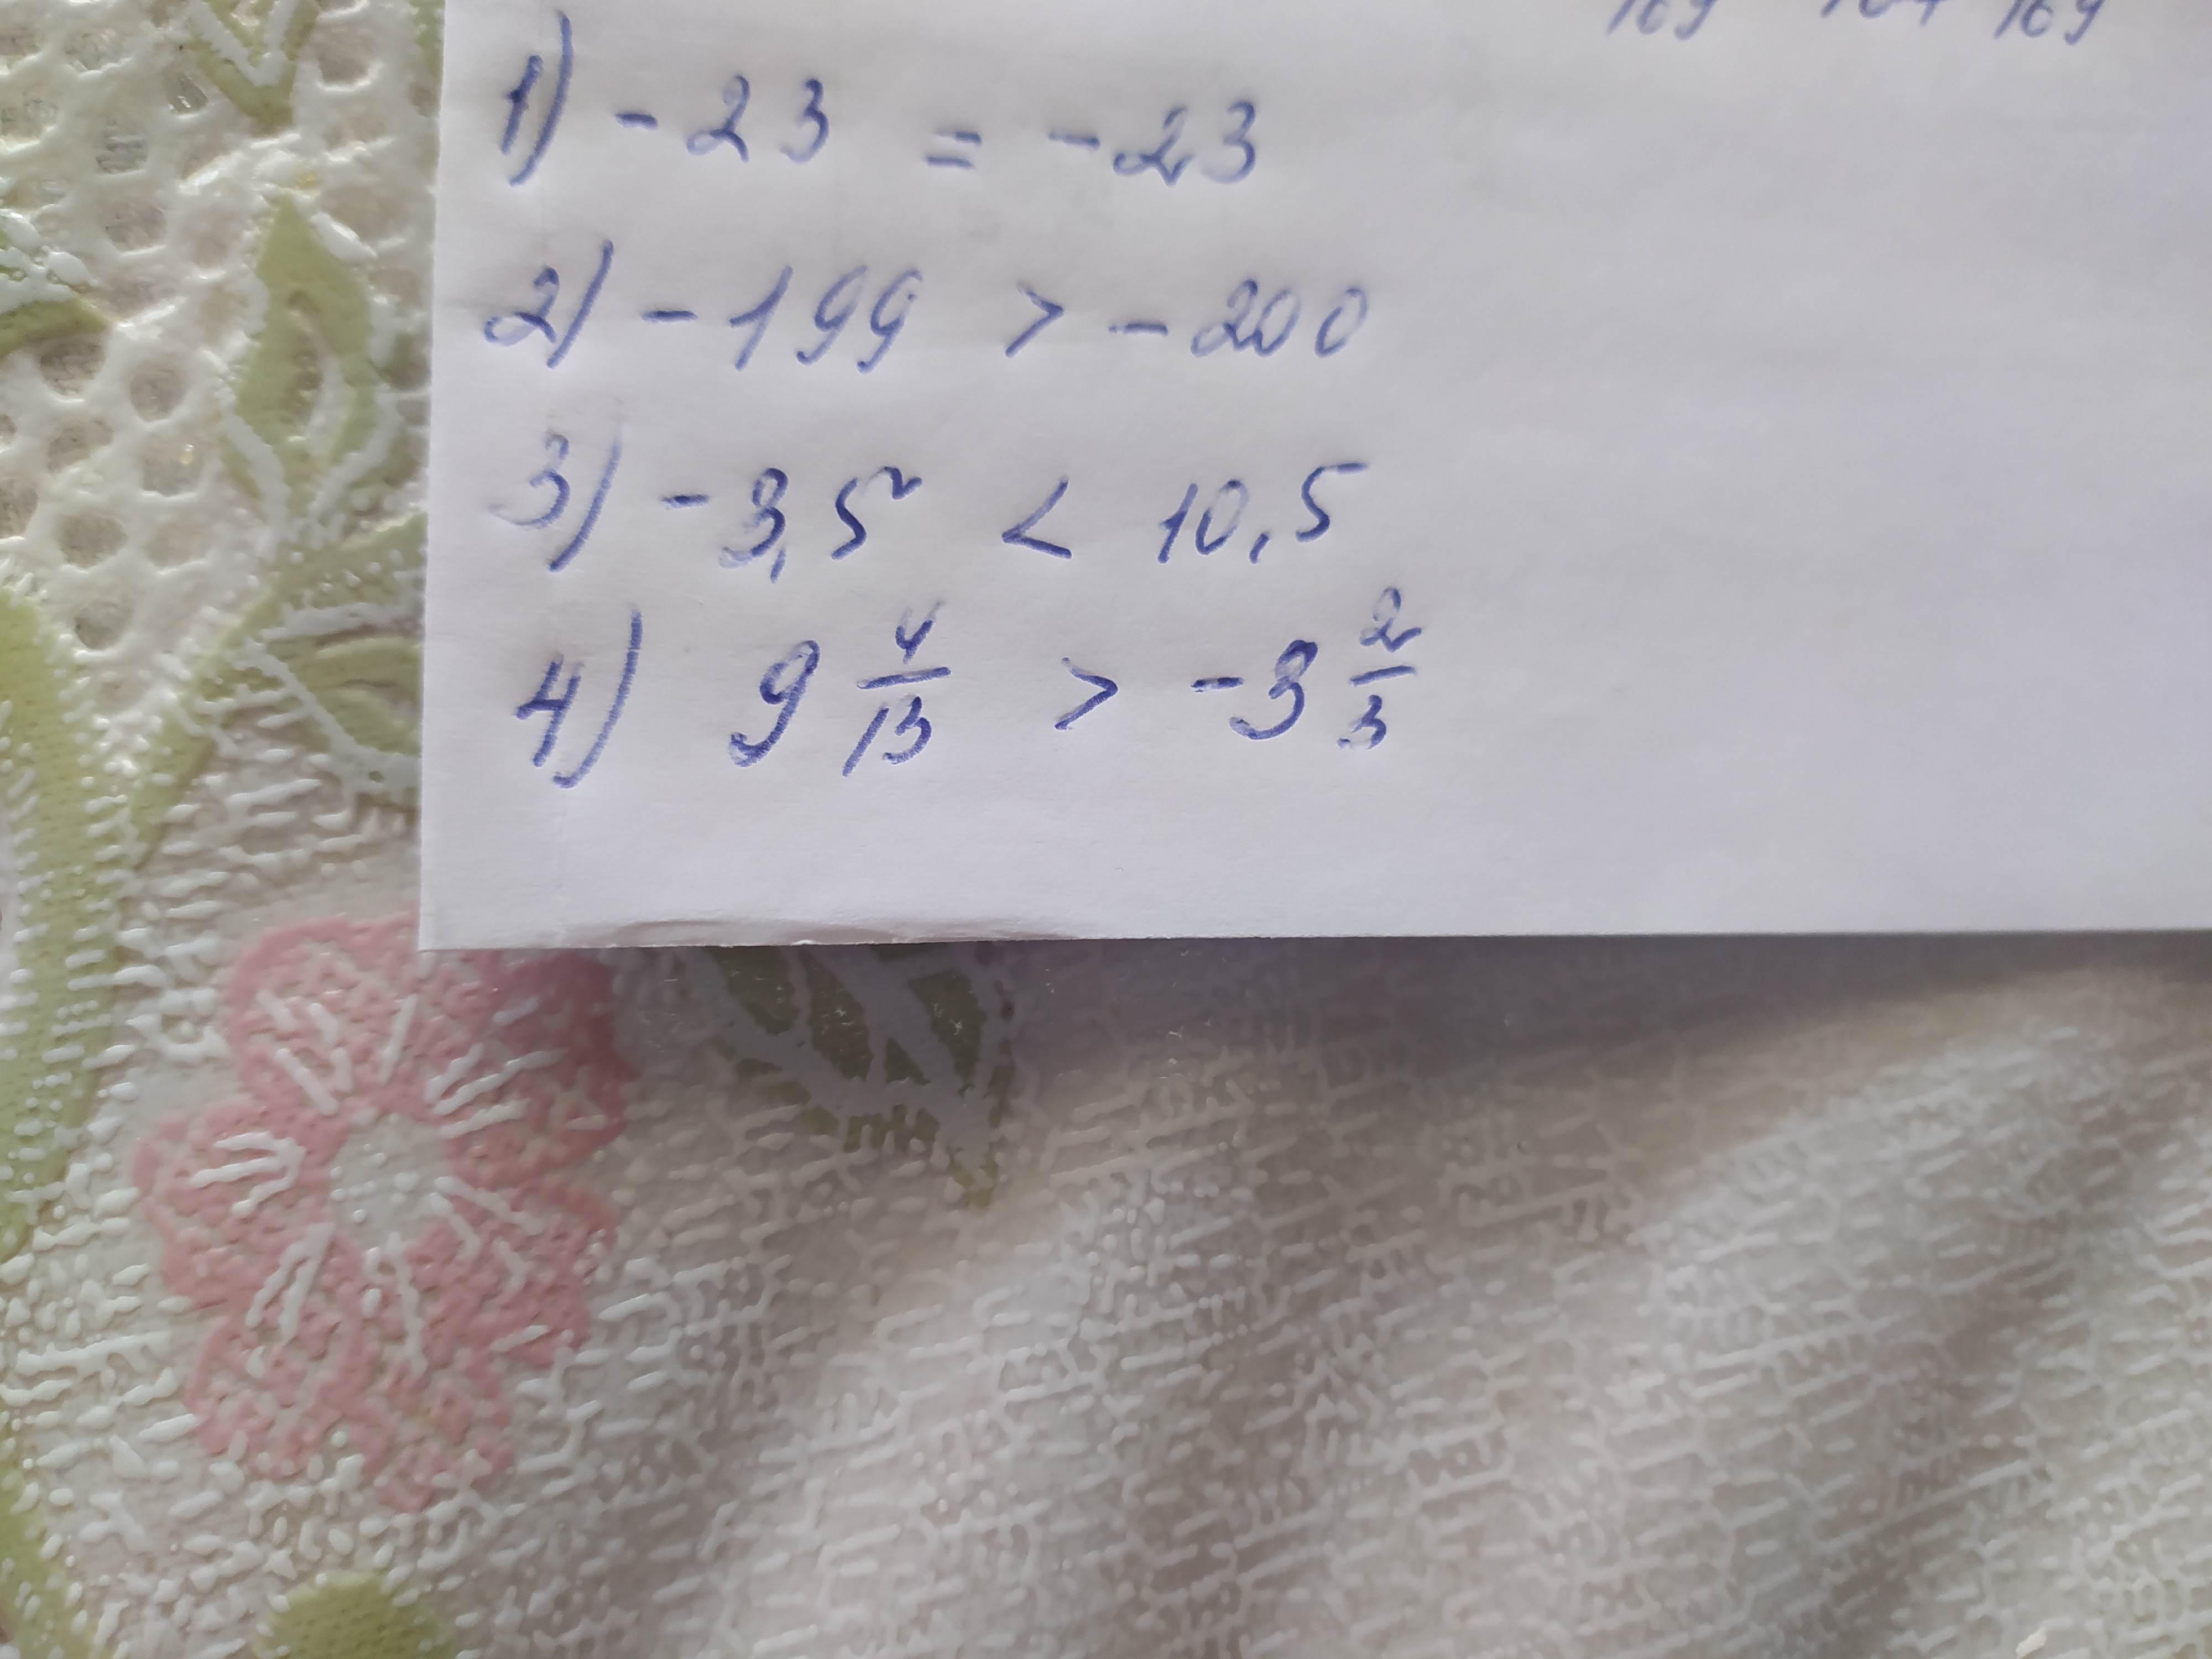 1) - 23 = - 23
2) - 199 > - 200
3) - 3,5 < 10,5
4) 9 4/13 > - 3 2/3